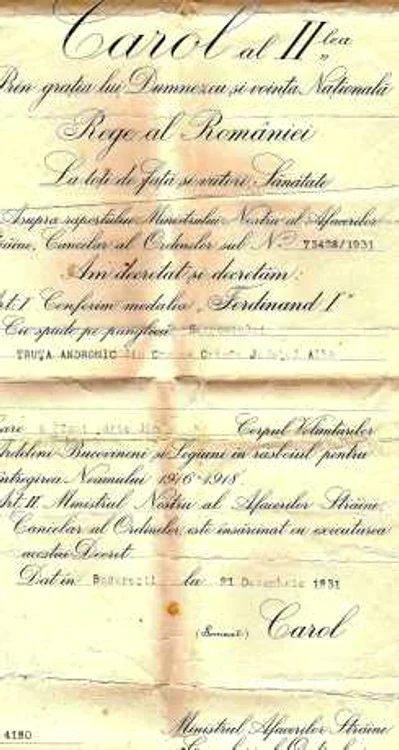 Carol al II lea
Prin gratia lui Dumnezeu și voința Națională
Rege al României
La toti de față si viitori, Sănătate
Asupra raportului Ministrului Nostru al Afacerilor
Străine, Cancelar al Ordinelor sub No 73478/1931
Am decretat și decretăm:
Art. I Conferim medalia „Ferdinand I"
Cu spade pe panglică
TRUȚA ANDRONIC din Alba
care Corpul Voluntarilor
Ardeleni Bucovineni si Legiuni în răsboiul pentru
întregirea Neamului 1916-1918.
Art. II. Ministrul Nostru al Afacerilor Străine,
Cancelar al Ordinelor, este însărcinat cu executarea
acestui Decret
Dat în București la 21 Decembrie 1931
(Semnat) Carol
4180
Ministrul Afacerilor Străine